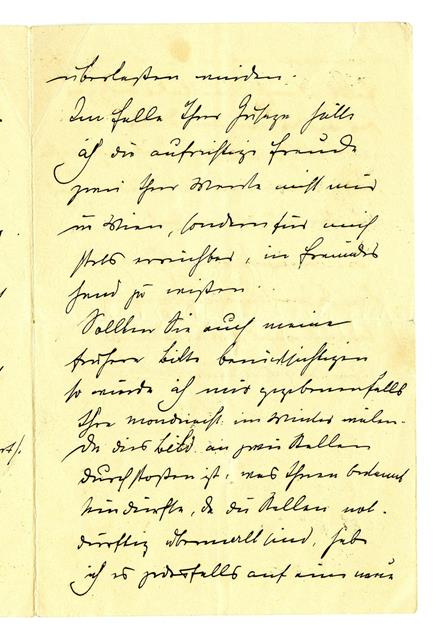 überlassen würden.
Im Falle Ihrer Zusage hätte
ich die aufrichtige Freude
zwei Ihrer Werke nicht nur
in Wien, sondern für mich
stets erreichbar, in Freundes
Hand zu wissen.
Sollten Sie auch meine
frühere Bitte berücksichtigen
so würde ich mir gegebenenfalls
Ihre Mondnacht im Winter wählen.
Da dies Bild an zwei Stellen
durchstoßen ist, was Ihnen bekannt
sein dürfte, da die Stellen not-
dürftig übermalt sind, habe
ich es jedesfalls auf eine neue